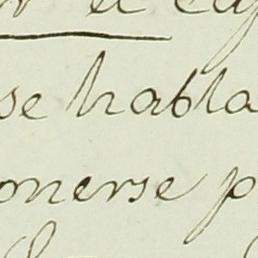 se habla
onerse p